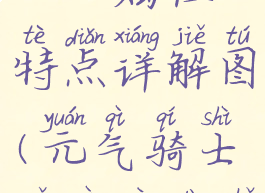 tè diǎn xiáng jiě tú
特点详解图
yuán qì qí shì
(元气骑士